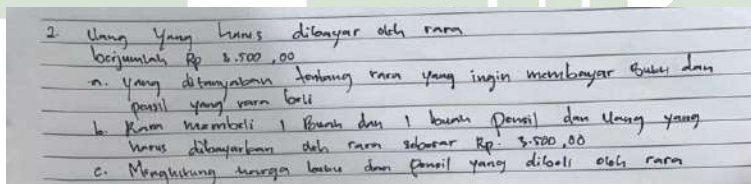 2. Uang Yang harus dibayar oleh rara
berjumlah Rp 3.500,00
a. Yang ditanyakan tentang rara yang ingin membayar Buku dan
pensil yang rara beli
b. Rara membeli 1 Buah dan 1 buah Pensil dan Uang yang
harus dibayarkan oleh rara sebesar Rp. 3.500,00
c. Menghitung harga buku dan Pensil yang dibeli oleh rara